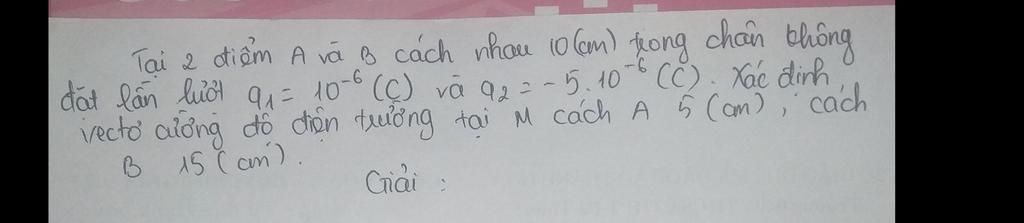 Tại 2 điểm A và B cách nhau 10 (cm) trong chân không
đặt lần lượt q₁ = 10⁻⁶ (C) và q₂ = -5.10⁻⁶ (C). Xác định
vectơ cường độ điện trường tại M cách A 5 (cm), cách
B 15 (cm).
Giải :